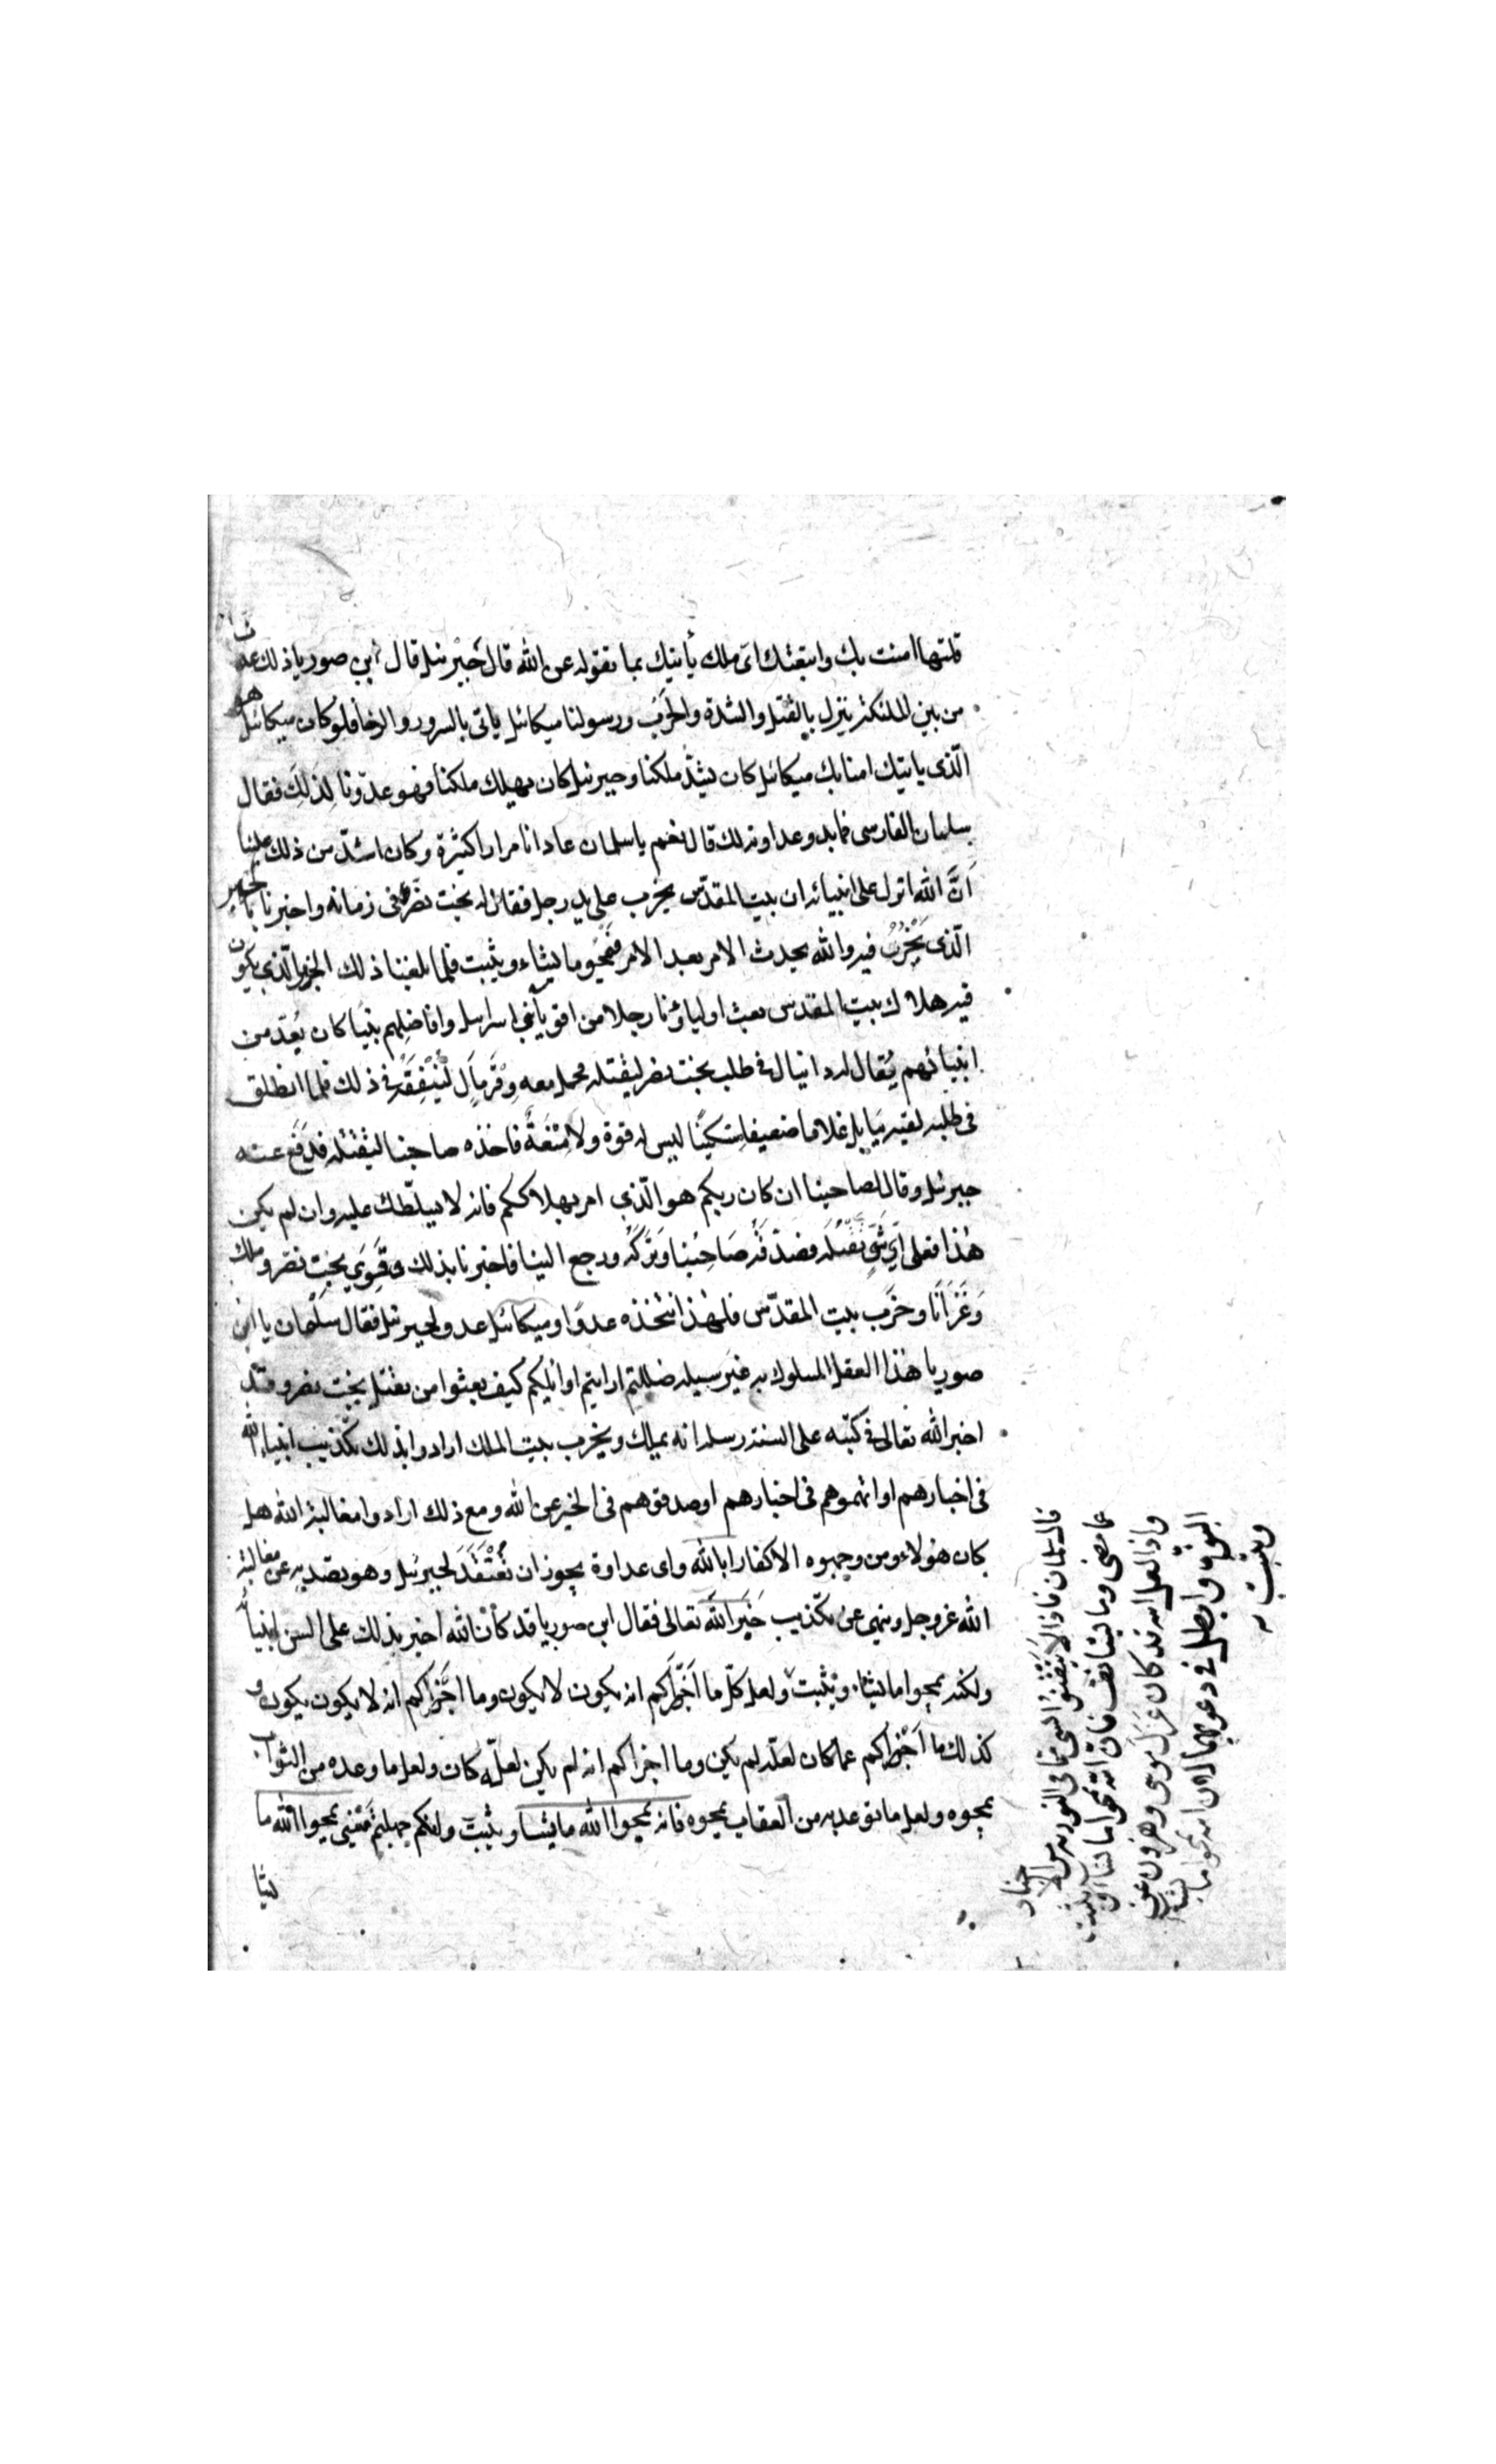 قلتها امنت بك واتبعتك اىّ ملك يأتيك بما تقوله عن الله قال جبرئيل قال ابن صوريا ذلك عدونا
من بين الملئكة ينزل بالقتل والشدة والحرب ورسولنا ميكائيل ياتى بالسرور والرخا فلو كان ميكائيل هو
الّذى ياتيك امنا بك ميكائيل كان يشدّ ملكنا وجبرئيل كان يهلك ملكنا فهو عدوّنا لذلك فقال
سلمان الفارسى فما بدو عداوته لك قال نعم يا سلمان عادانا مرارا كثيرة وكان اشدّ من ذلك علينا
انّ الله انزل على انبيائه ان بيت المقدّس يخرب على يد رجل يقال له بخت نصّر وفى زمانه واخبرنا بالحين
الّذى يخرب فيه والله يحدث الامر بعد الامر فيمحو ما يشاء ويثبت فلما بلغنا ذلك الخبر الّذى يكون
فيه هلاك بيت المقدس بعث اوليائنا رجلا من اقوياء بنى اسرائيل وافاضلهم نبيا كان يعدّ من
انبيائهم يُقال له دانيال فى طلب بخت نصر ليقتله فحمل معه وقر مال لينفقه فى ذلك فلما انطلق
فى طلبه لقيه ببابل غلاما ضعيفا مسكينًا ليس له قوة ولا منعة فاخذه صاحبنا ليقتله فدفع عنه
جبرئيل وقال لصاحبنا ان كان ربكم هو الّذى امر بهلاككم فانه لا يسلّطك عليه وان لم يكن
هذا فعلى اىّ شىء تقتله فصدّقه صاحبنا وتركه ورجع الينا فاخبرنا بذلك وقوى بخت نصر وملك
وغزانا وخرّب بيت المقدّس فلهذا نتّخذه عدوّا وميكائيل عدو لجبرئيل فقال سلمان يا ابن
صوريا هذا العقل المسلوك به غير سبيله ضللتم ارايتم اوائلكم كيف بعثوا من يقتل بخت نصر وقد
اخبر الله تعالى فى كتبه على السنة رسله انه يملك ويخرب بيت الملك ارادوا بذلك تكذيب انبياء الله
فى اخبارهم او اتهموهم فى اخبارهم او صدقوهم فى الخبر عن الله ومع ذلك ارادوا مغالبة الله هل
كان هؤلاء ومن وجهوه الا كفارا بالله واى عداوة يجوز ان تُعتقد لجبرئيل وهو يصد به عن مغالبة
الله عزوجل وينهى عن تكذيب خبر الله تعالى فقال ابن صوريا قد كان الله اخبر بذلك على السن انبيائه
ولكنه يمحوا ما يشاء ويثبت ولعل كلّ ما اخبراكم انه يكون لا يكون وما اخبراكم انه لا يكون يكون و
كذلك ما اخبراكم عما كان لعلّه لم يكن وما اخبراكم انه لم يكن لعلّه كان ولعل ما وعده من الثواب
يمحوه ولعل ما توعد به من العقاب يمحوه فانه يمحوا الله ما يشا ويثبت وانكم جهلتم معنى يمحوا الله ما
يشا
قال سلمان فاذا لا تثقوا بشى مما فى التورية من الاخبار
عما مضى وما يستانف فان الله يمحوا ما يشاء ويثبت
واذا لعل الله قد كان عزل موسى وهرون عن
النبوة وابطل فى دعوىهما لان الله يمحوا ما يشاء
ويثبت